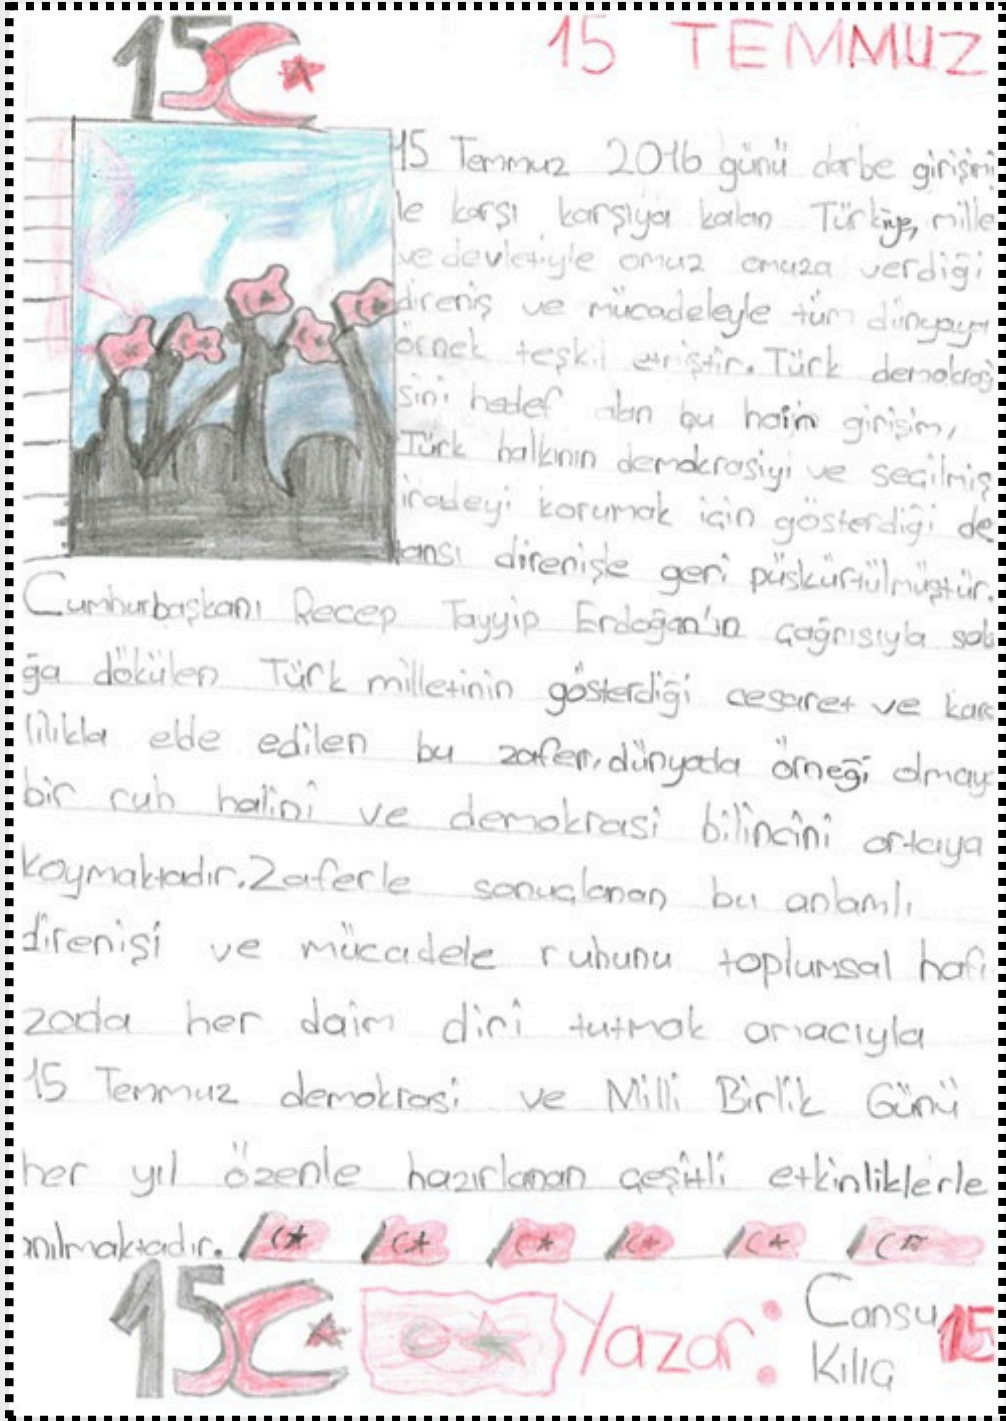 15
15 TEMMUZ
15 Temmuz 2016 günü darbe girişimi
le karşı karşıya kalan Türkiye, mille
ve devletiyle omuz omuza verdiği
direniş ve mücadeleyle tüm dünyaya
örnek teşkil etmiştir. Türk demokra
sini hedef alan bu hain girişim,
Türk halkının demokrasiyi ve seçilmiş
iradeyi korumak için gösterdiği de
ansı direnişle geri püskürtülmüştür.
Cumhurbaşkanı Recep Tayyip Erdoğan'ın çağrısıyla sok
ğa dökülen Türk milletinin gösterdiği cesaret ve kara
lılıkla elde edilen bu zafer, dünyada örneği olmay
bir ruh halini ve demokrasi bilincini ortaya
koymaktadır. Zaferle sonuçlanan bu anlamlı
direnişi ve mücadele ruhunu toplumsal hafı
zada her daim diri tutmak amacıyla
15 Temmuz demokrasi ve Milli Birlik Günü
her yıl özenle hazırlanan çeşitli etkinliklerle
anılmaktadır.
15
Yazar: Cansu
Kılıç
15